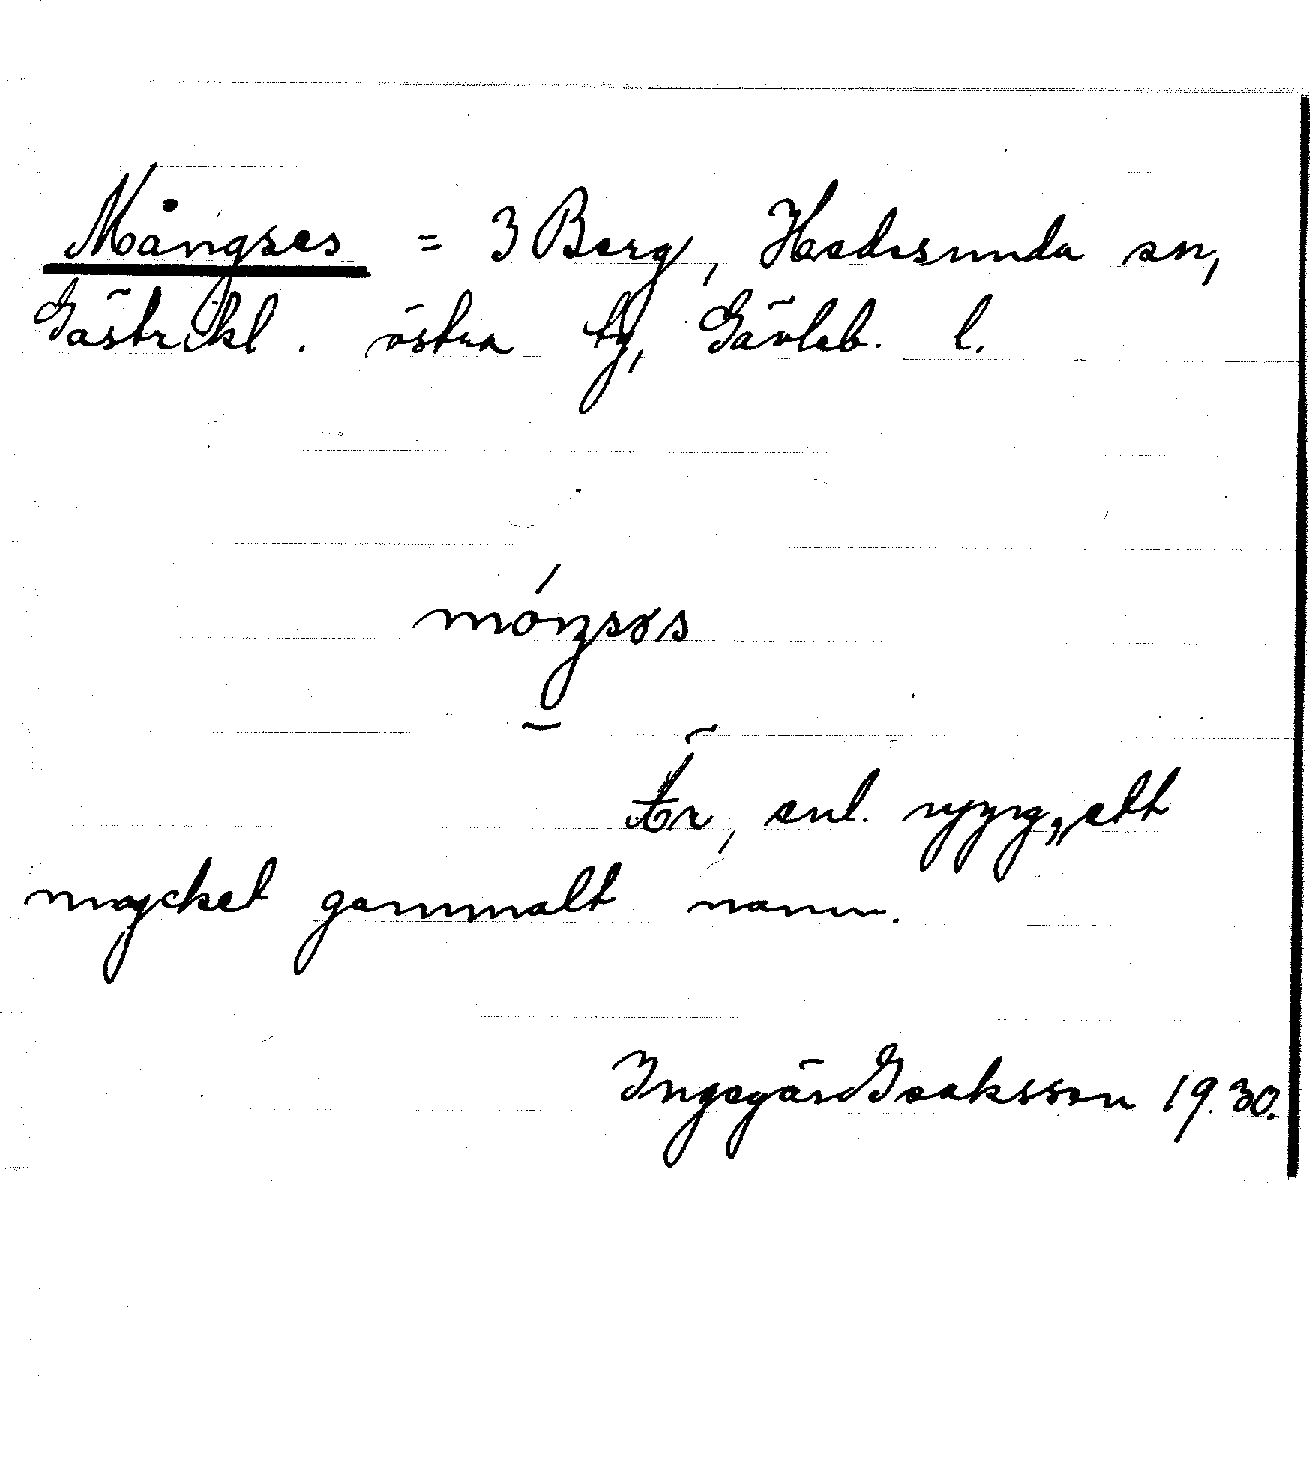 Mångses = 3 Berg, Hedesunda sn,
Gästrikl. östra tg, Gävleb. l.
móŋsəs
Är, enl. nyyrg, „ett
mycket gammalt namn.
Ingegärd Isaksson 1930.